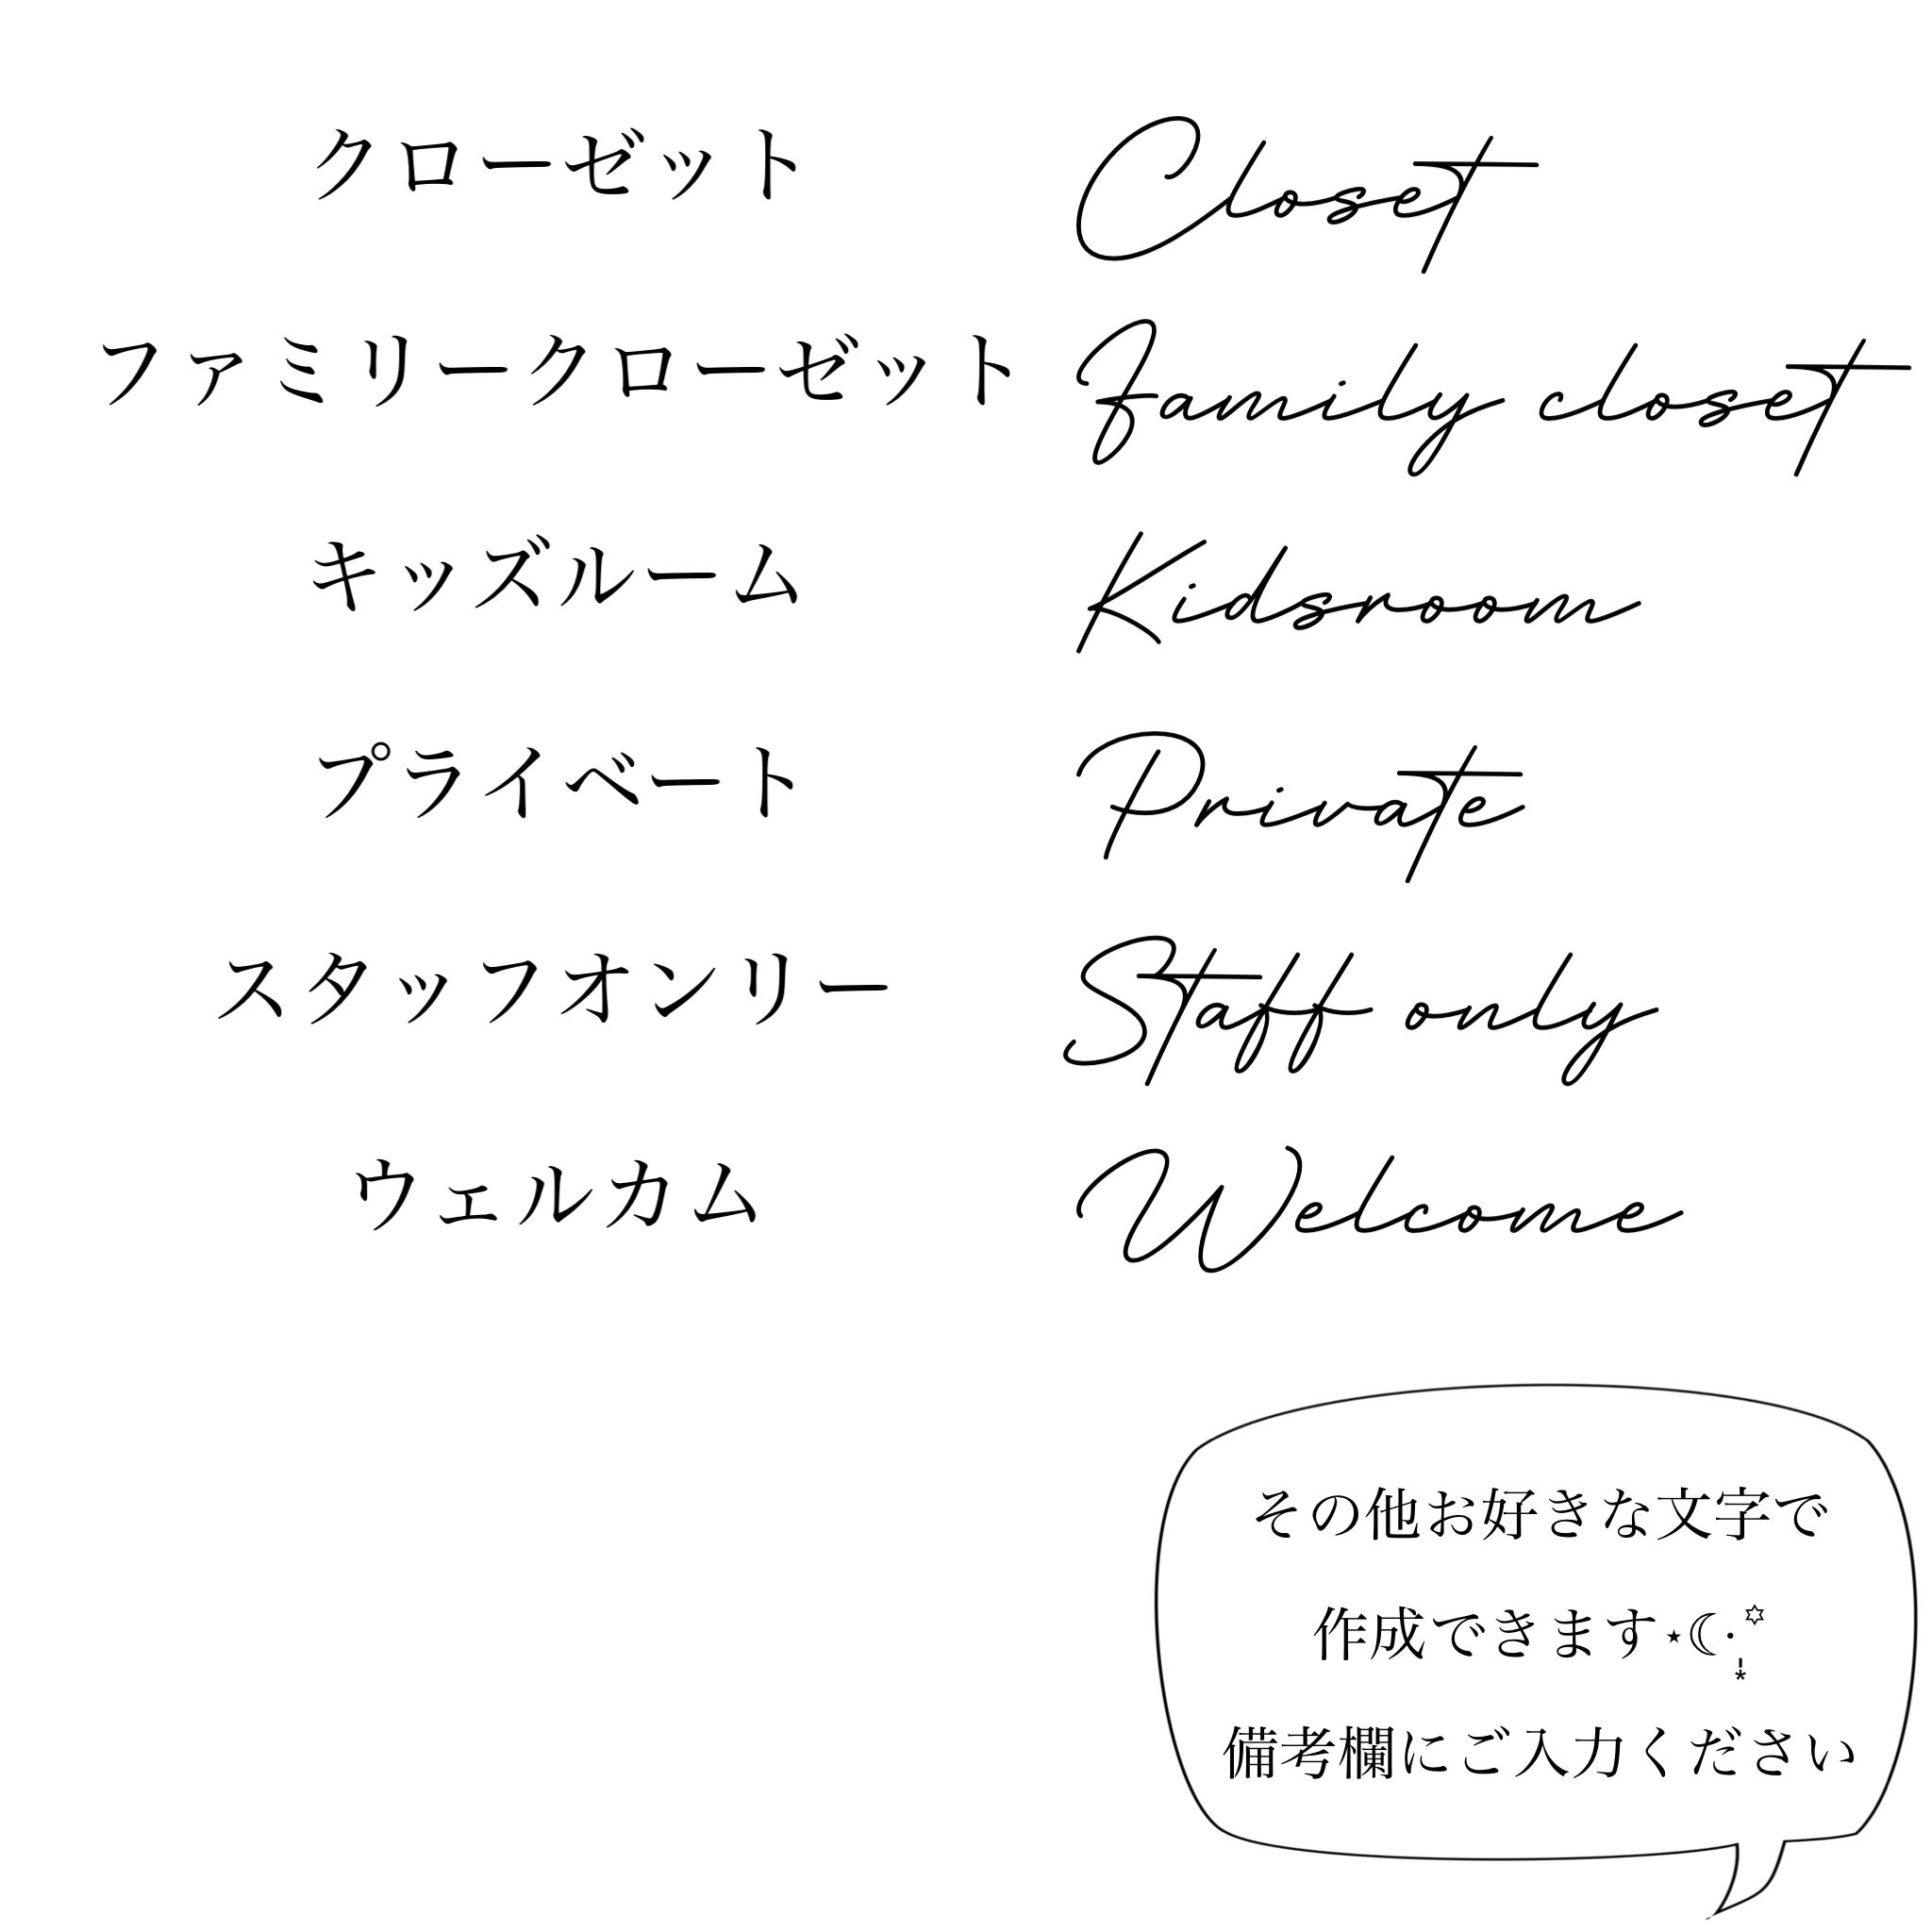 クローゼット Closet
ファミリークローゼット Family closet
キッズルーム Kidsroom
プライベート Private
スタッフオンリー Staff only
ウェルカム Welcome
その他お好きな文字で
作成できます⋆☾·̩͙✡
備考欄にご入力ください